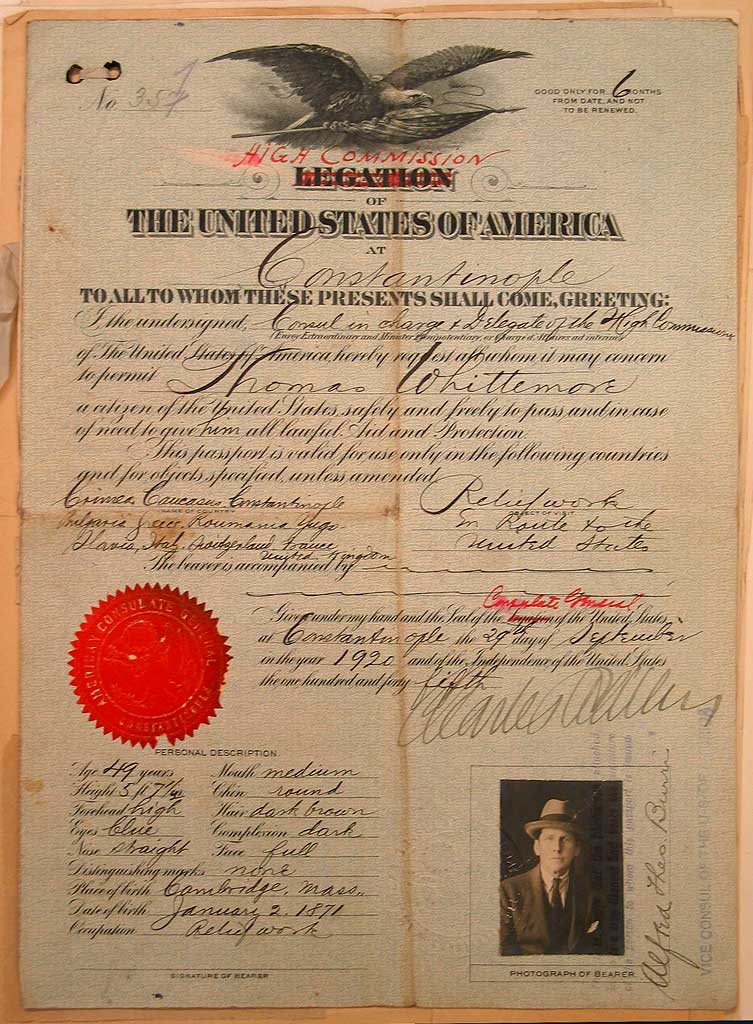 No 357
GOOD ONLY FOR 6 MONTHS
FROM DATE, AND NOT
TO BE RENEWED.
HIGH COMMISSION
LEGATION
OF
THE UNITED STATES OF AMERICA
AT
Constantinople
TO ALL TO WHOM THESE PRESENTS SHALL COME, GREETING:
I, the undersigned, Consul in charge & Delegate of the High Commissioner
(Envoy Extraordinary and Minister Plenipotentiary, or Chargé d'Affaires ad interim)
of The United States of America, hereby request all whom it may concern
to permit Thomas Whittemore
a citizen of the United States, safely and freely to pass and in case
of need to give him all lawful Aid and Protection.
This passport is valid for use only in the following countries
and for objects specified, unless amended
Crimea Caucasus Constantinople Relief work
NAME OF COUNTRY OBJECT OF VISIT
Bulgaria Greece Roumania Jugo- En Route to the
Slavia, Italy, Switzerland, France United States
United Kingdom
The bearer is accompanied by
Consulate General
Given under my hand and the Seal of the Legation of the United States
at Constantinople the 29th day of September
in the year 1920 and of the Independence of the United States
the one hundred and forty fifth
AMERICAN CONSULATE GENERAL
CONSTANTINOPLE
PERSONAL DESCRIPTION
Age 49 years Mouth medium
Height 5 ft 7½ ins Chin round
Forehead high Hair dark brown
Eyes blue Complexion dark
Nose straight Face full
Distinguishing marks none
Place of birth Cambridge, Mass.,
Date of birth January 2, 1871
Occupation Relief work
SIGNATURE OF BEARER
PHOTOGRAPH OF BEARER
Alfred Theo. Burri
VICE CONSUL OF THE U.S. OF